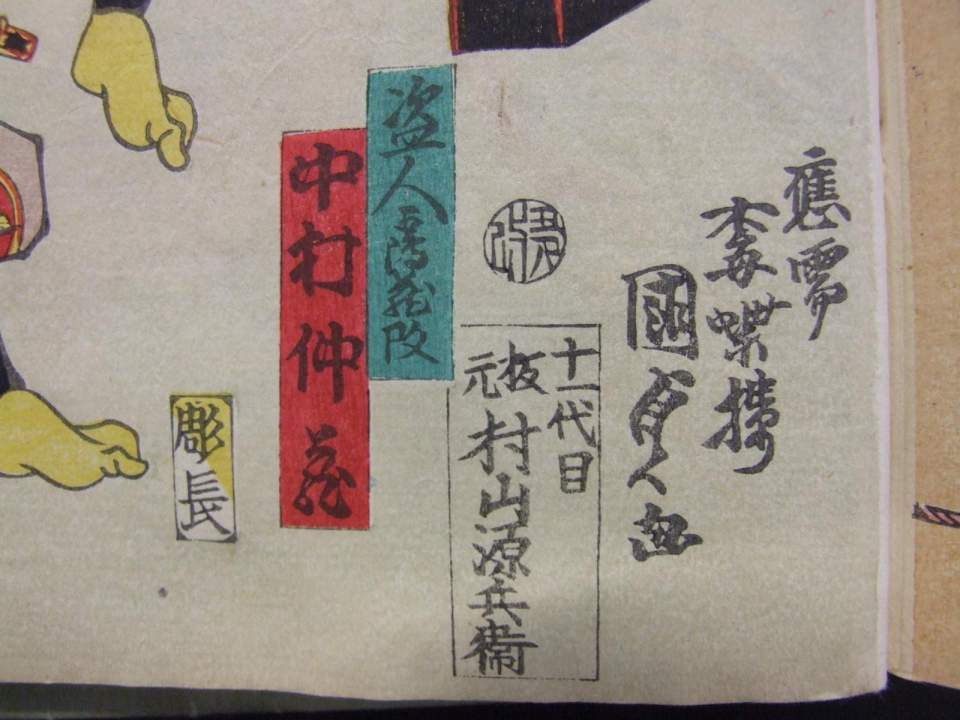 應需
梅蝶樓
國貞画
十一代目
板元
村山源兵衛
盗人
鶴蔵改
中村仲蔵
彫長